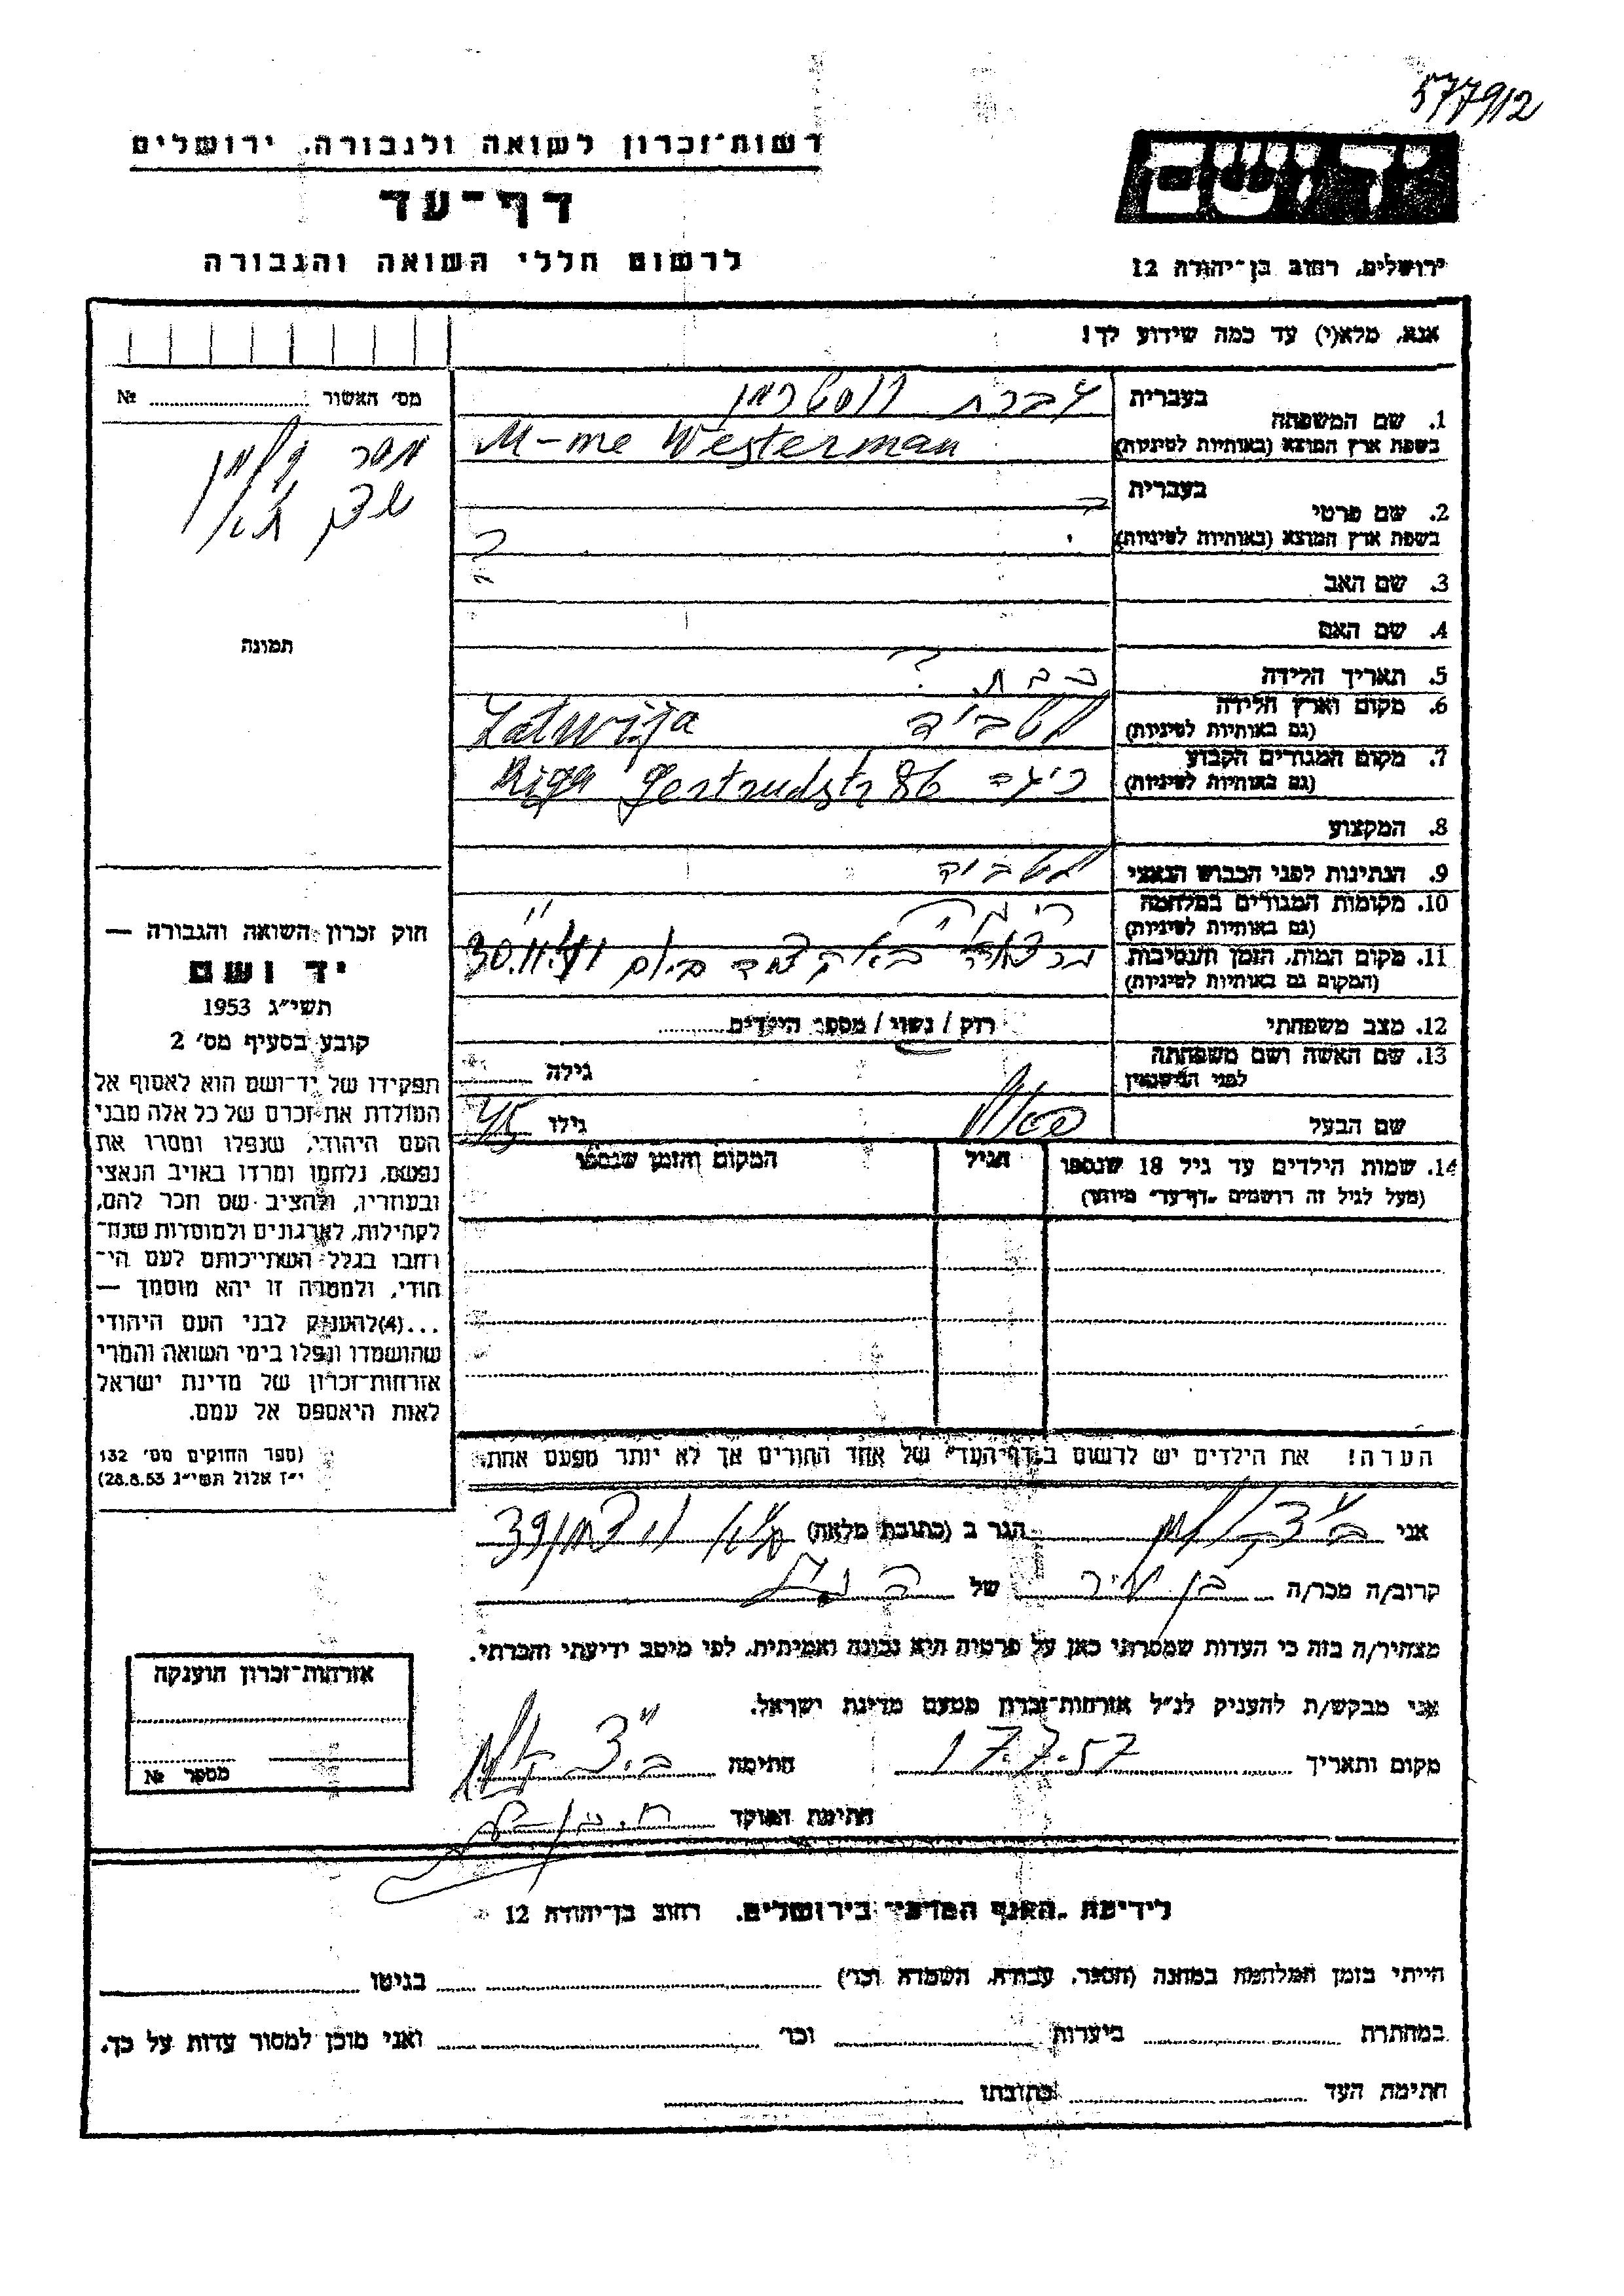 577912
יד ושם
ירושלים, רחוב בן־יהודה 12
רשות־זכרון לשואה ולגבורה, ירושלים
דף־עד
לרשום חללי השואה והגבורה
אנא, מלא(י) עד כמה שידוע לך!
1. שם המשפחה
בעברית גברת ווסטרמן
בשפת ארץ המוצא (באותיות לטיניות) M-me Westerman
2. שם פרטי
בעברית
בשפת ארץ המוצא (באותיות לטיניות) ?
3. שם האב
4. שם האם
5. תאריך הלידה כבת ?
6. מקום וארץ הלידה
(גם באותיות לטיניות) לטביה Latwija
7. מקום המגורים הקבוע
(גם באותיות לטיניות) ריגה Riga Gertrudstr 86
8. המקצוע
9. הנתינות לפני הכבוש הנאצי לטבית
10. מקומות המגורים במלחמה
(גם באותיות לטיניות) ריגה
11. מקום המות, הזמן והנסיבות
(המקום גם באותיות לטיניות) ביום 30.11.41
12. מצב משפחתי רווק / נשוי / מספר הילדים
13. שם האשה ושם משפחתה
לפני הנישואין גילה
שם הבעל גילו 45
14. שמות הילדים עד גיל 18 שנספו הגיל המקום והזמן שנספו
(מעל לגיל זה רושמים "דף־עד" מיוחד)
הערה! את הילדים יש לרשום ב"דף־העד" של אחד ההורים אך לא יותר מפעם אחת.
מס' האשור №
תמונה
חוק זכרון השואה והגבורה —
יד ושם
תשי"ג 1953
קובע בסעיף מס' 2
תפקידו של יד־ושם הוא לאסוף אל
המולדת את זכרם של כל אלה מבני
העם היהודי, שנפלו ומסרו את
נפשם, נלחמו ומרדו באויב הנאצי
ובעוזריו, ולהציב שם וזכר להם,
לקהילות, לארגונים ולמוסדות שנח־
רבו בגלל השתייכותם לעם הי־
הודי, ולמטרה זו יהא מוסמך —
...(4)להעניק לבני העם היהודי
שהושמדו ונפלו בימי השואה והמרי
אזרחות־זכרון של מדינת ישראל
לאות היאספם אל עמם.
(ספר החוקים מס' 132
י"ז אלול תשי"ג 28.8.53)
אני הגר ב (כתובת מלאה)
קרוב/ה מכר/ה של
מצהיר/ה בזה כי העדות שמסרתי כאן על פרטיה היא נכונה ואמיתית, לפי מיטב ידיעתי והכרתי.
אני מבקש/ת להעניק לנ"ל אזרחות־זכרון מטעם מדינת ישראל.
מקום ותאריך 17.7.57 חתימה
חתימת הפוקד
אזרחות־זכרון הוענקה
מספר №
לידיעת "האגף המדעי" בירושלים, רחוב בן־יהודה 12
הייתי בזמן המלחמה במחנה (הסגר, עבודה, השמדה וכו') בגיטו
במחתרת ביערות וכו' ואני מוכן למסור עדות על כך.
חתימת העד כתובתו